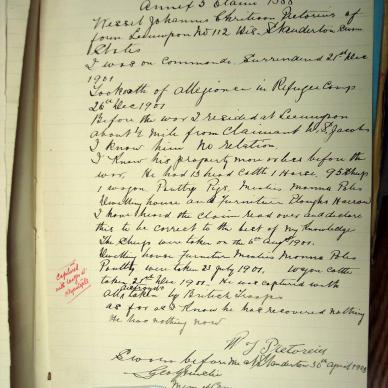 Annex 3 Claim 1588
Wessel Johannes Christiaan Pretorius of
farm Leeuwpan No 112 Dis. Standerton
States
I was on Commando. Surrendered 21st Dec
1901
Took oath of allegiance in Refugee Camp
26th Dec 1901.
Before the war I resided at Leeuwpan
about ½ mile from Claimant W. S. Jacobs
I know him No relation.
I knew his property more or less before the
war. He had 13 head cattle 1 Horse. 95 Sheep
1 wagon Poultry Pigs, Mealies Manna Poles
Dwelling house and Furniture Ploughs Harrow
I have heard the claim read over and declare
this to be correct to the best of my knowledge
The sheep were taken on the 6th Augt 1901.
Dwelling house Furniture Mealies Manna Poles
Poultry were taken 23 July 1901. Wagon cattle
taken 21st Dec 1901. He was captured with
All taken by British troops
as far as I know he has recovered nothing
He has nothing now.
Captured
with wagon at
W. J. Pretorius
Sworn before me at Standerton 30th April 190